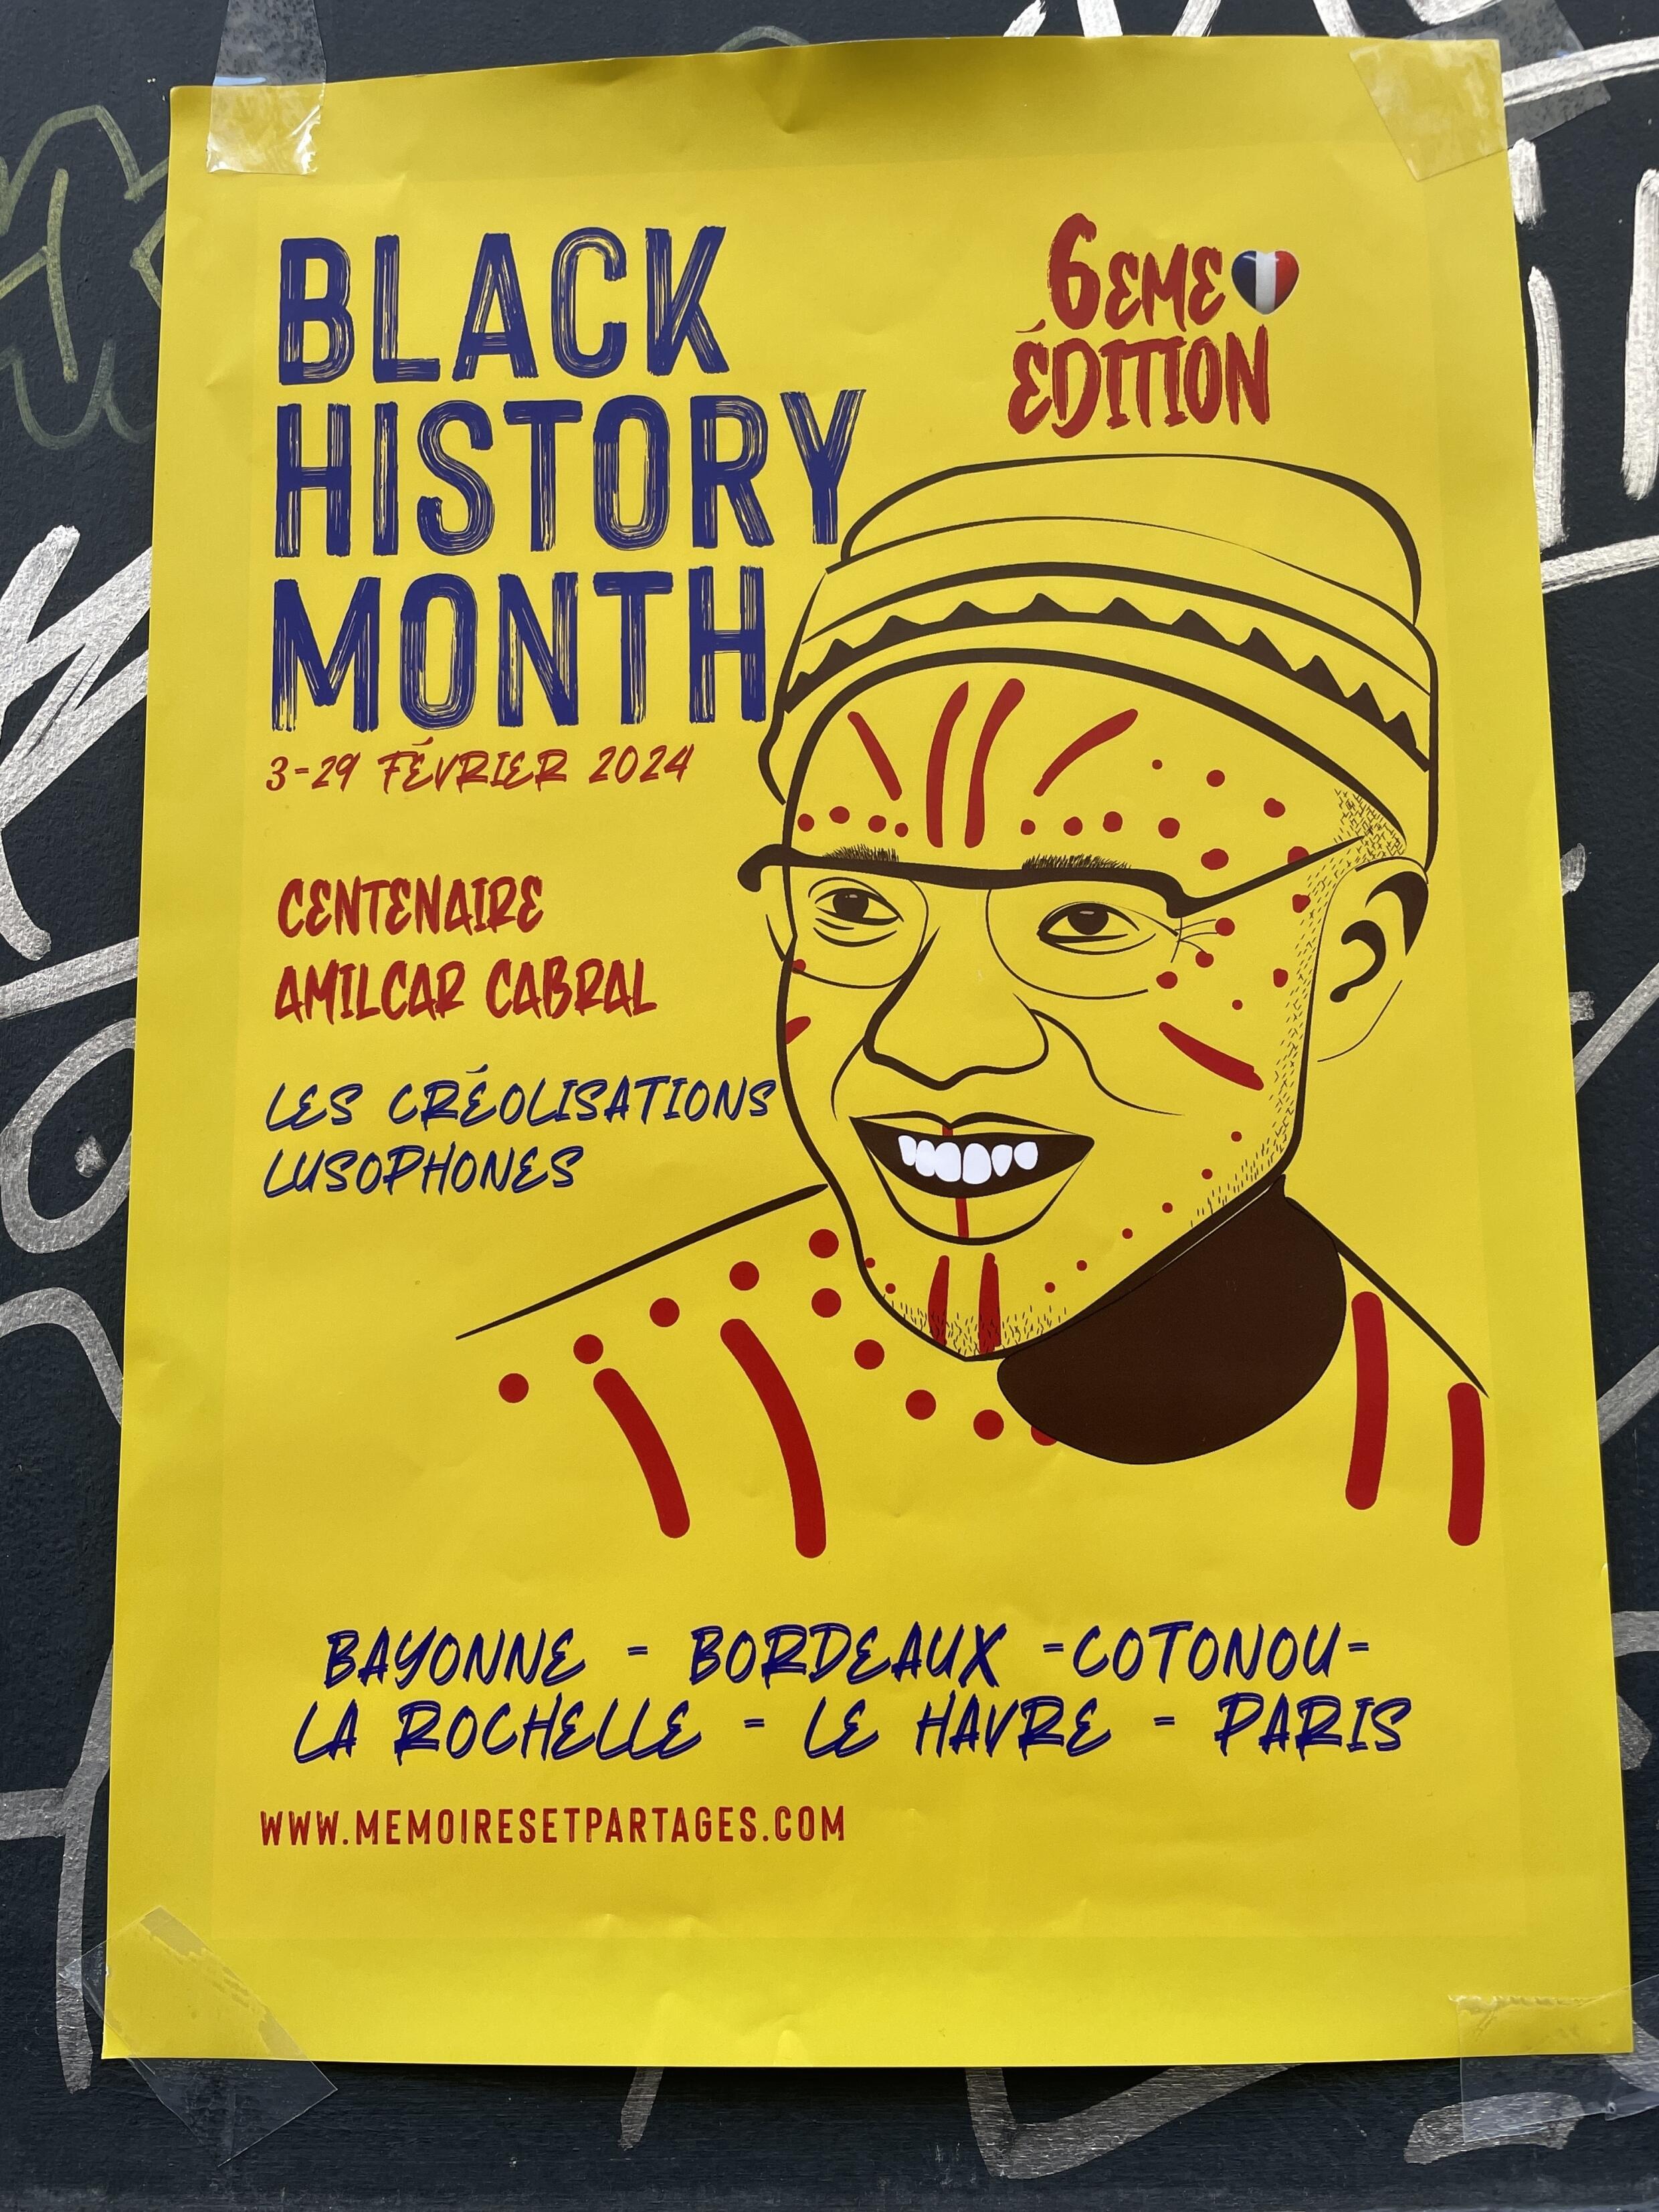 BLACK
HISTORY
MONTH
3-29 FÉVRIER 2024
6EME
ÉDITION
CENTENAIRE
AMILCAR CABRAL
LES CRÉOLISATIONS
LUSOPHONES
BAYONNE - BORDEAUX -COTONOU-
LA ROCHELLE - LE HAVRE - PARIS
WWW.MEMOIRESETPARTAGES.COM